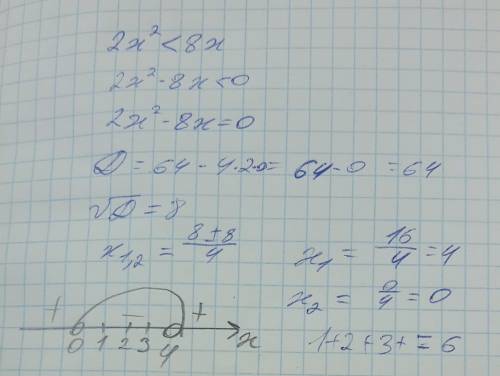 2x² < 8x
2x² - 8x < 0
2x² - 8x = 0
D = 64 - 4·2·0 = 64 - 0 = 64
√D = 8
x₁,₂ = (8 ± 8)/4
x₁ = 16/4 = 4
x₂ = 0/4 = 0
+ − +
0 1 2 3 4 x
1+2+3+ = 6